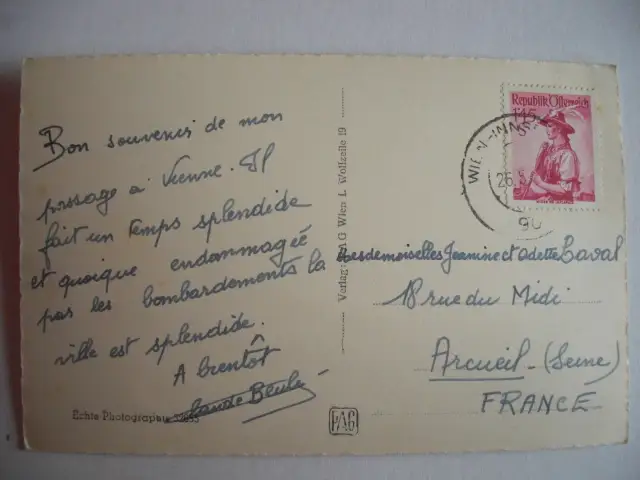 Bon souvenir de mon
passage à Vienne. Il
fait un temps splendide
et quoique endommagée
par les bombardements la
ville est splendide.
A bientôt
Claude
Echte Photographie
Verlag: G Wien I, Wollzeile 19
PAG
Republik Österreich
1.45
WIEN-INN
26.
Mesdemoiselles Jeanine et Odette Laval
18 rue du Midi
Arcueil - (Seine)
FRANCE